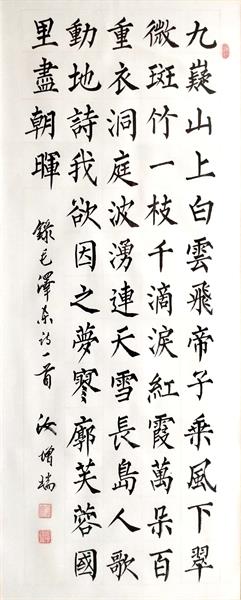 九嶷山上白雲飛帝子乘風下翠
微斑竹一枝千滴淚紅霞萬朵百
重衣洞庭波湧連天雪長島人歌
動地詩我欲因之夢寥廓芙蓉國
里盡朝暉
錄毛澤東詩一首 汝增瑞